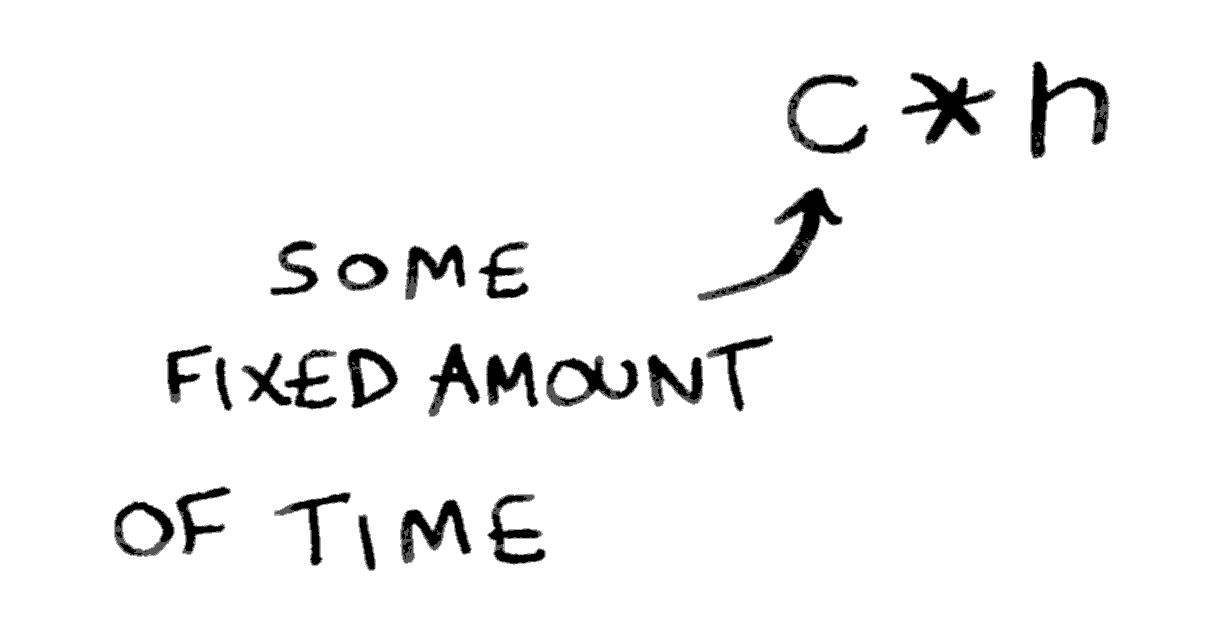 c * n
SOME
FIXED AMOUNT
OF TIME